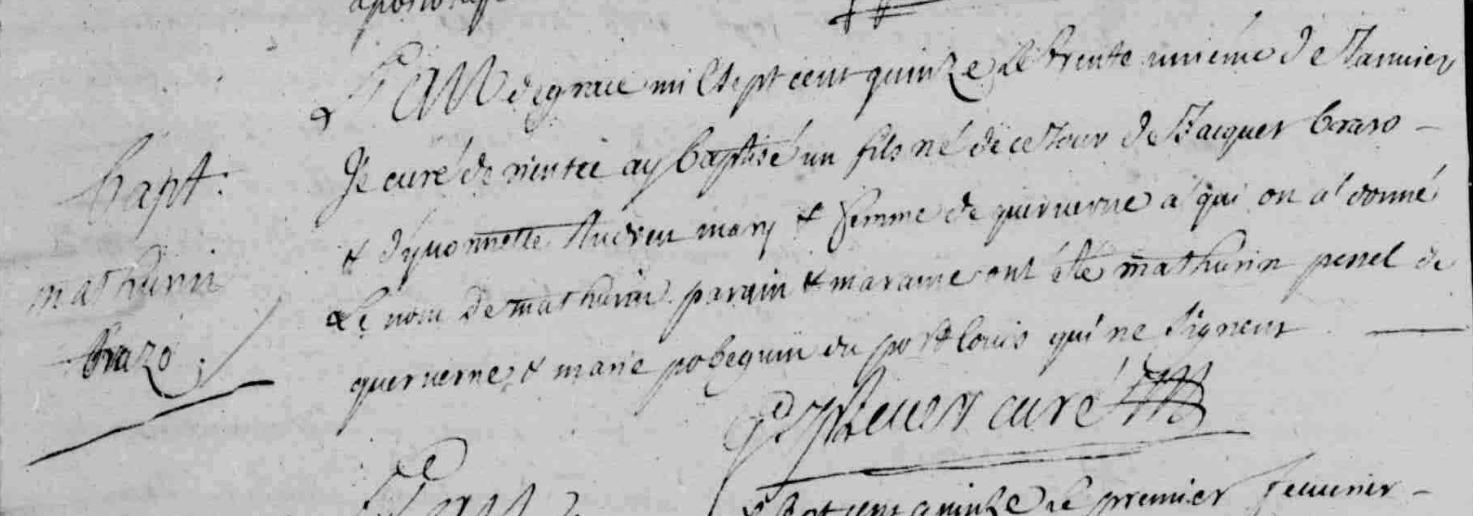 L'an de grace mil sept cent quinze le trente unieme de Janvier
Je curé de ay baptisé un fils né de ce Jour de Jacques brazo
bapt:
& d'yvonnette Audren mary & femme de querverne a qui on a donné
mathurin
Le nom de mathurin parain & maraine ont été mathurin penel de
brazo
querverne & marie pobeguin du port louis qui ne signent
curé
sept cent quinze le premier fevrier